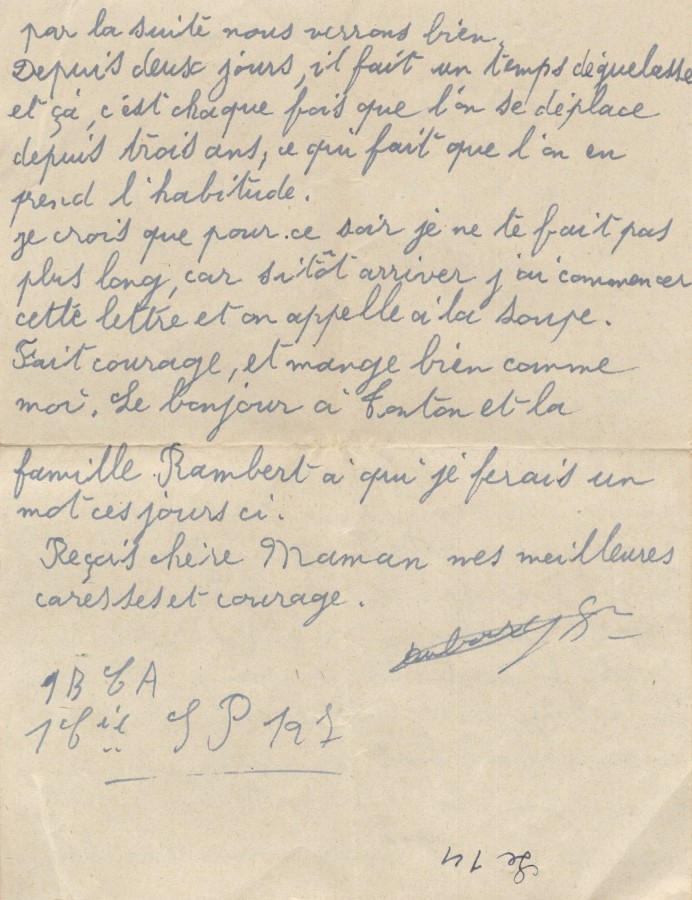 par la suite nous verrons bien.
Depuis deux jours, il fait un temps déguelasse
et çà, c'est chaque fois que l'on se déplace
depuis trois ans, ce qui fait que l'on en
prend l'habitude.
je crois que pour ce soir je ne te fait pas
plus long, car sitôt arriver j'ai commencer
cette lettre et on appelle à la soupe.
Fait courage, et mange bien comme
moi. Le bonjour à Tonton et la
famille Rambert à qui je ferais un
mot ces jours ci.
Reçois chère Maman mes meilleures
caresses et courage.
1 B C A
1 Cie S P 197
Le 14